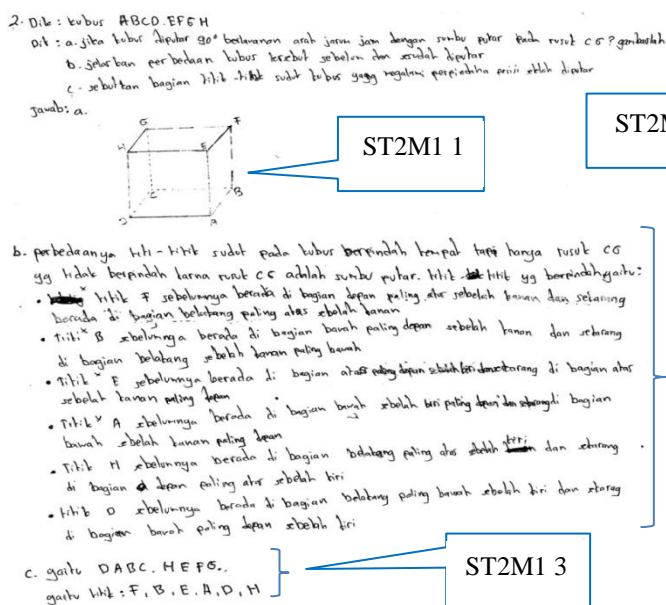 2. Dik : kubus ABCD.EFGH
Dit : a. jika kubus diputar 90° berlawanan arah jarum jam dengan sumbu putar pada rusuk CG? gambarlah
b. jelaskan perbedaan kubus tersebut sebelum dan sesudah diputar
c. sebutkan bagian titik-titik sudut kubus yang mengalami perpindahan posisi stlah diputar
Jawab: a.
G F
H E
C B
D A
ST2M1 1
ST2M
b. perbedaanya titi-titik sudut pada kubus berpindah tempat tapi hanya rusuk CG
yg tidak berpindah karna rusuk CG adalah sumbu putar. titik titik yg berpindah yaitu:
• titik F sebelumnya berada di bagian depan paling atas sebelah kanan dan sekarang
berada di bagian belakang paling atas sebelah kanan
• Titik B sebelumnya berada di bagian bawah paling depan sebelah kanan dan sekarang
di bagian belakang sebelah kanan paling bawah
• Titik E sebelumnya berada di bagian atas paling depan sebelah kiri dan sekarang di bagian atas
sebelah kanan paling depan
• Titik A sebelumnya berada di bagian bawah sebelah kiri paling depan dan sekarang di bagian
bawah sebelah kanan paling depan
• Titik H sebelumnya berada di bagian belakang paling atas sebelah kiri dan sekarang
di bagian depan paling atas sebelah kiri
• titik D sebelumnya berada di bagian belakang paling bawah sebelah kiri dan skarag
di bagian bawah paling depan sebelah kiri
c. yaitu DABC.HEFG..
yaitu titik : F, B, E, A, D, H
ST2M1 3